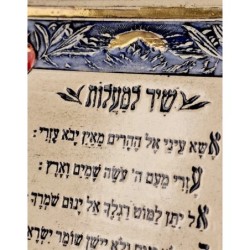 שיר למעלות
אשא עיני אל ההרים מאין יבא עזרי:
עזרי מעם ה׳ עשה שמים וארץ:
אל יתן למוט רגלך אל ינום שמרך
ולא יישן שומר ישרא